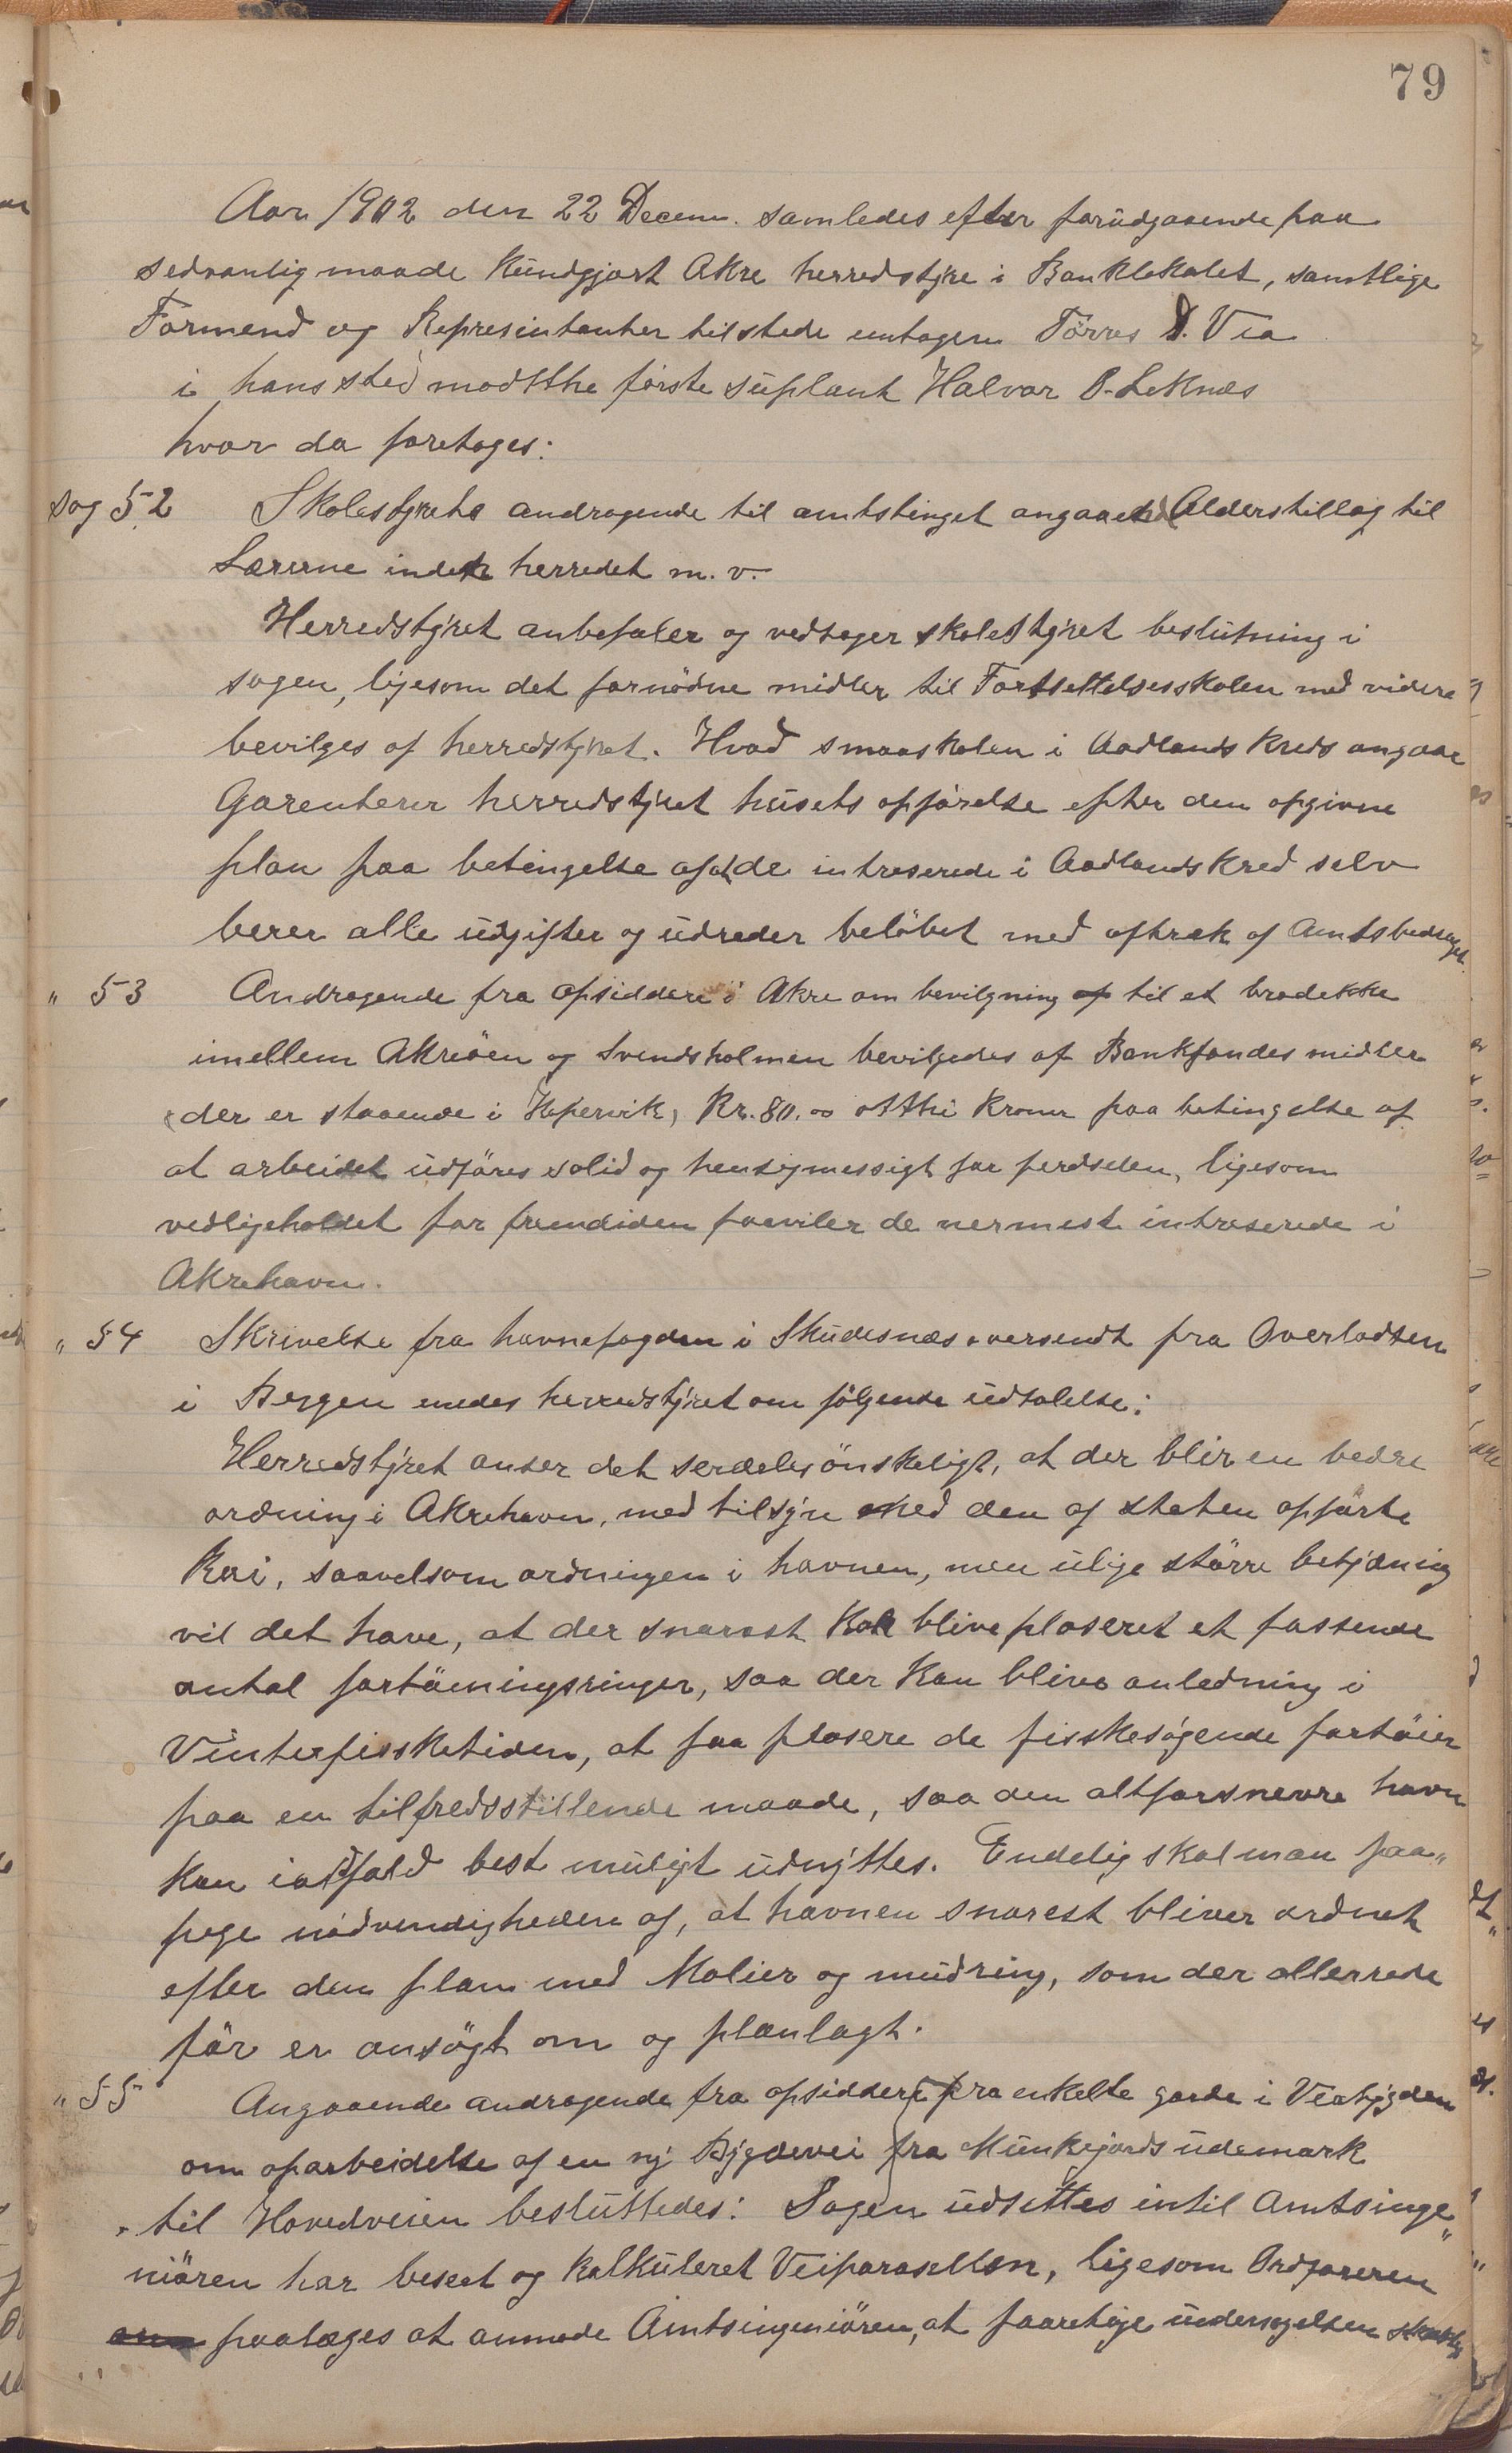 79
Aar 1902 den 22 Decem. samledes efter forudgaaende paa
sedvanlig maade kundgjort Akre herredstyre i Banklokalet, samtlige
Formend og Represintanter tilstede untagen Törres D. Vea
i hans sted mødtte første suplant Halvor O. Leknæs
hvor da foretoges:
Sag 52 Skolestyrets andragende til amtstinget angaaende Alderstillæg til
Lærerne inden herredet m. v.
Herredstyret anbefaler og vedtager skolestyret beslutning i
sagen, ligesom det fornödne midler til Fortsettelsesskolen med videre
bevilges af herredstyret. Hvad smaaskolen i Aadlands kreds angaar
Garenterer herredstyret husets opførelse efter den opgivne
plan paa betingelse af at de intreserede i Aadlandskred selv
berer alle udgifter og udreder belöbet med aftræk af Amtsbedraget.
" 53 Andragende fra opsiddere i Akre om bevilgning af til et brodekke
imellem Akreöen og Svendsholmen bevilgedes af Bankfondes midler
der er staaende i Kopervik, Kr. 80.00 otthi kroner paa betingelse af
at arbeidet udföres solid og hensigmessigt for ferdselen, ligesom
vedligeholdet for fremdiden paaviler de nermest intreserede i
Akrehavn.
" 54 Skrivelse fra havnefogden i Skudesnæs oversendt fra Overlodsen
i Bergen medes herredstyret om følgende udtalelse:
Herredstyret anser det serdeles önskeligt, at der blir en bedre
ordning i Akrehavn, med tilsyn med den af staten opførte
Kai, saavelsom ordningen i havnen, men ulige större betydning
vil det have, at der snarest kan blive plaseret et passende
antal fortöiningsringer, saa der kan blive anledning i
Vinterfisketiden, at faa plasere de fiskesøgende fartöier
paa en tilfredsstillende maade, saa den altforsnevre havn
kan ialfald best muligt udnyttes. Endelig skal man paa"
pege nødvendigheden af, at havnen snarest bliver ordnet
efter den plan med Molier og mudring, som der allerrede
för er ansögt om og planlagt.
" 55 Angaaende andragende fra opsiddere fra enkelte garde i Veabygden
om oparbeidelse af en ny Bygdevei fra Munkejords udemark
til Hovedveien besluttedes: Sagen udsettes intil Amtsinge"
niören har beseet og kalkuleret Veiparasellen, ligesom Ordføreren
paalæges at anmode Amtsingeniören, at foaretage undersøgelsen